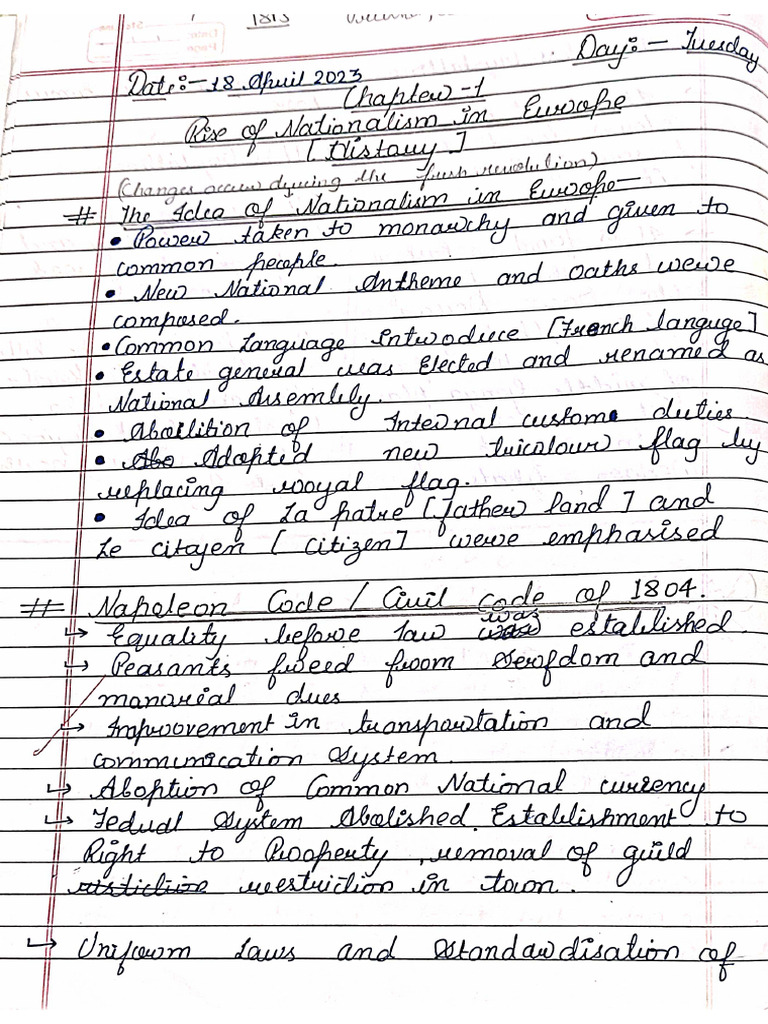 1815
Day:- Tuesday
Date:- 18 April 2023
Chapter-1
Rise of Nationalism in Europe
[History]
(Changes occur during the fresh revolution)
# The Idea of Nationalism in Europe-
• Power taken to monarchy and given to
common people.
• New National Antheme and oaths were
composed.
• Common Language Introduce [French languge]
• Estate general was Elected and renamed as
National Assembly.
• Aboilition of Internal custom duties.
• Abo Adopted new tricolour flag by
replacing royal flag.
• Idea of La patre [father land] and
Le citayen [Citizen] were emphasised
# Napoleon Code / Civil code of 1804.
↳ Equality before law was established.
↳ Peasants freed from serfdom and
manorial dues
↳ Improvement in transportation and
communication system.
↳ Aboption of Common National currency
↳ Fedual System Abolished. Establishment to
Right to Property, removal of guild
restriction in town.
↳ Uniform laws and Standardisation of